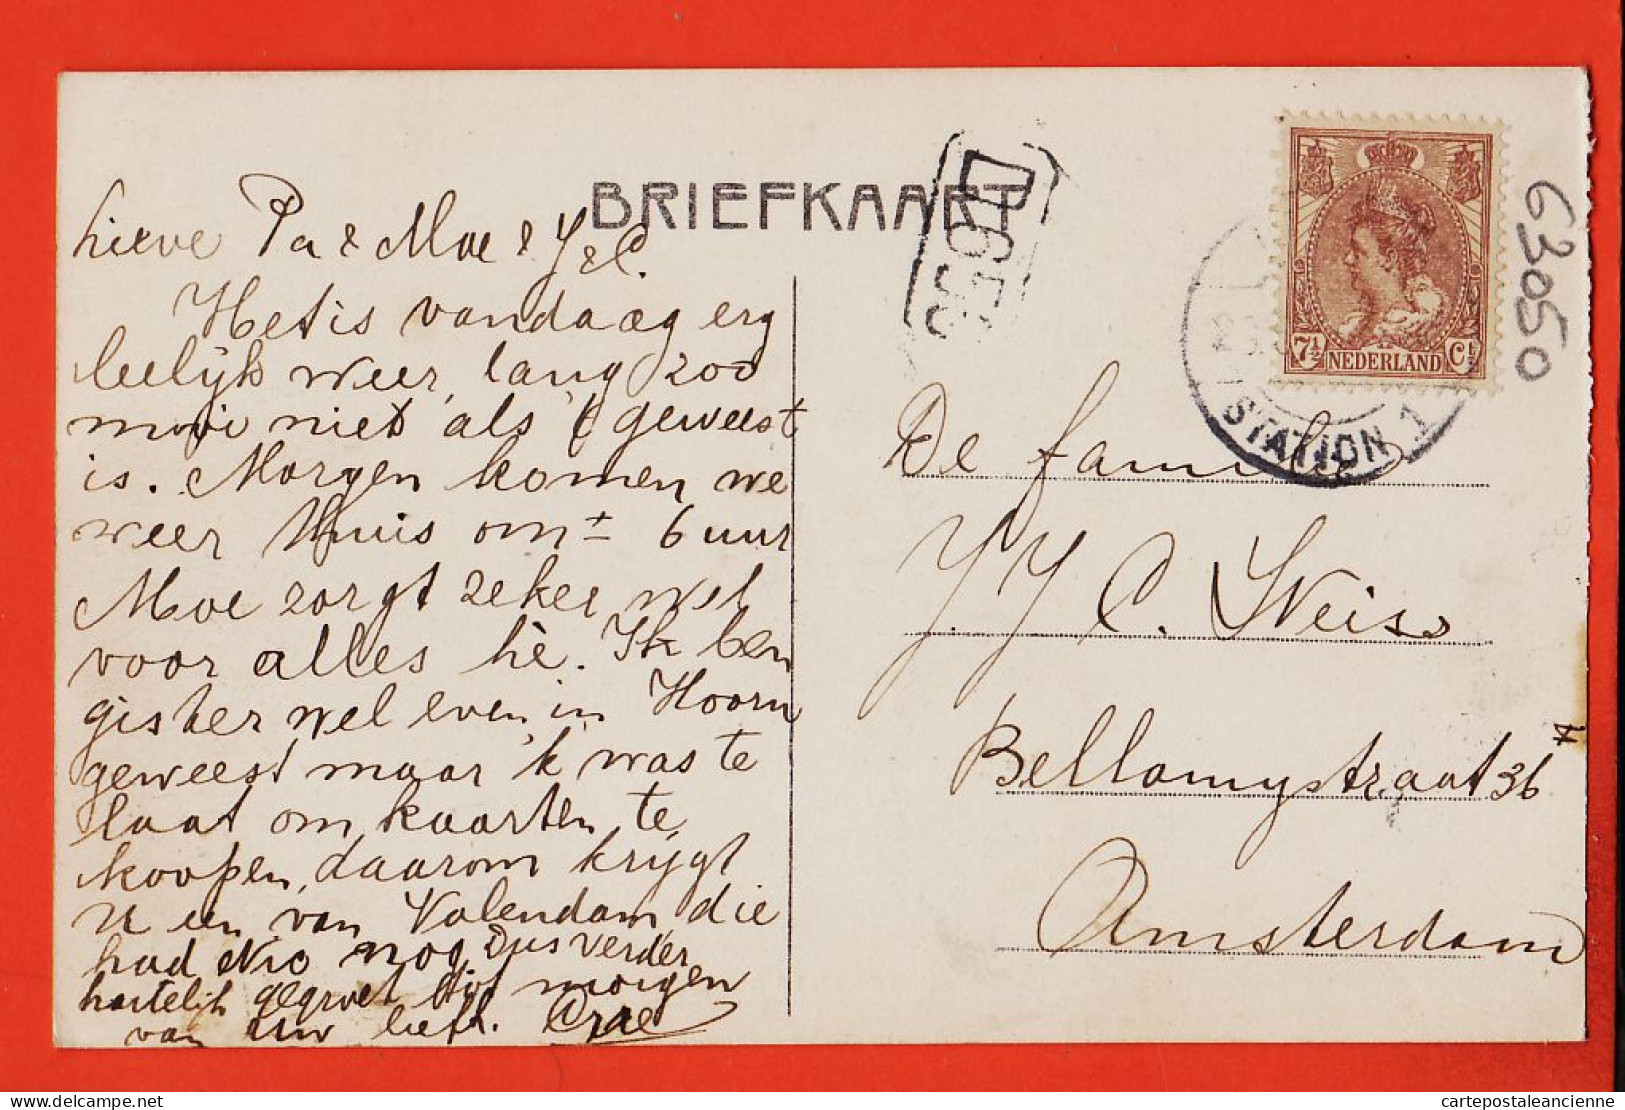 BRIEFKAART
Lieve Pa & Moe & J & C.
Het is vandaag erg
leelijk weer, lang zoo
mooi niet als 't geweest
is. Morgen komen we
weer thuis om ± 6 uur
Moe zorgt zeker wel
voor alles hè. Ik ben
gister wel even in Hoorn
geweest maar 'k was te
laat om kaarten te
koopen, daarom krijgt
U een van Volendam, die
had Nio nog Dus verder
hartelijk gegroet tot morgen
van Uw liefh.
NEDERLAND
7½ Ct
STATION 1
63050
De familie
J. J. C. Weiss
Bellamystraat 36
Amsterdam
delcampe.net
cartepostaleancienne